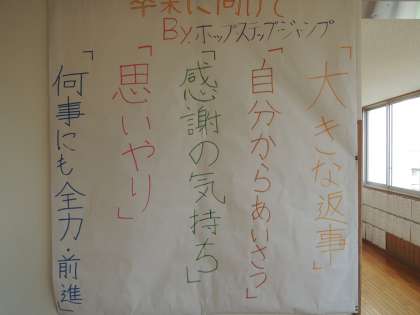 卒業に向けて
By.ホップステップジャンプ
「大きな返事」
「自分からあいさつ」
「感謝の気持ち」
「思いやり」
「何事にも全力・前進」